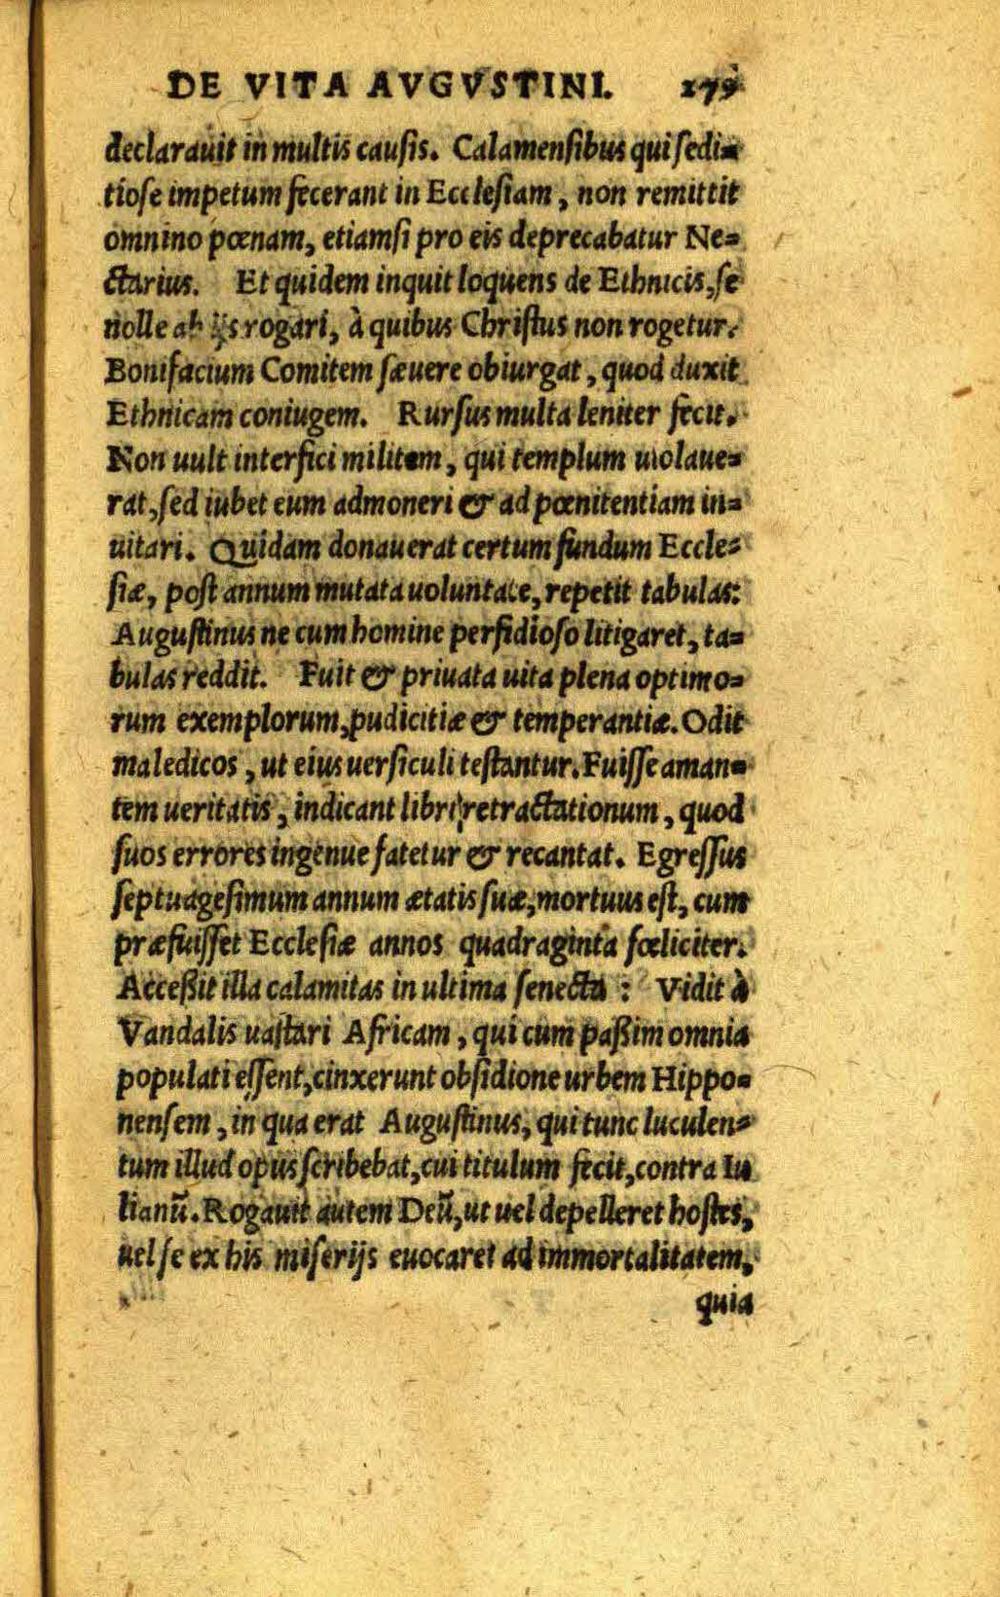 DE VITA AVGVSTINI. 279
declarauit in multis causis. Calamensibus qui sedi=
tiose impetum fecerant in Ecclesiam, non remittit
omnino pœnam, etiamsi pro eis deprecabatur Ne=
ctarius. Et quidem inquit loquens de Ethnicis, se
nolle ab ijs rogari, à quibus Christus non rogetur.
Bonifacium Comitem sæuere obiurgat, quod duxit
Ethnicam coniugem. Rursus multa leniter fecit.
Non uult interfici militem, qui templum uiolaue=
rat, sed iubet eum admoneri & ad pœnitentiam in=
uitari. Quidam donauerat certum fundum Eccle=
siæ, post annum mutata uoluntate, repetit tabulas:
Augustinus ne cum homine perfidioso litigaret, ta=
bulas reddit. Fuit & priuata uita plena optimo=
rum exemplorum, pudicitiæ & temperantiæ. Odit
maledicos, ut eius uersiculi testantur. Fuisse aman=
tem ueritatis, indicant libri retractationum, quod
suos errores ingenue fatetur & recantat. Egressus
septuagesimum annum ætatis suæ, mortuus est, cum
præfuisset Ecclesiæ annos quadraginta fœliciter.
Acceßit illa calamitas in ultima senecta : Vidit à
Vandalis uastari Africam, qui cum paßim omnia
populati essent, cinxerunt obsidione urbem Hippo=
nensem, in qua erat Augustinus, qui tunc luculen=
tum illud opus scribebat, cui titulum fecit, contra Iu
lianū. Rogauit autem Deū, ut uel depelleret hostes,
uel se ex his miserijs euocaret ad immortalitatem,
quia